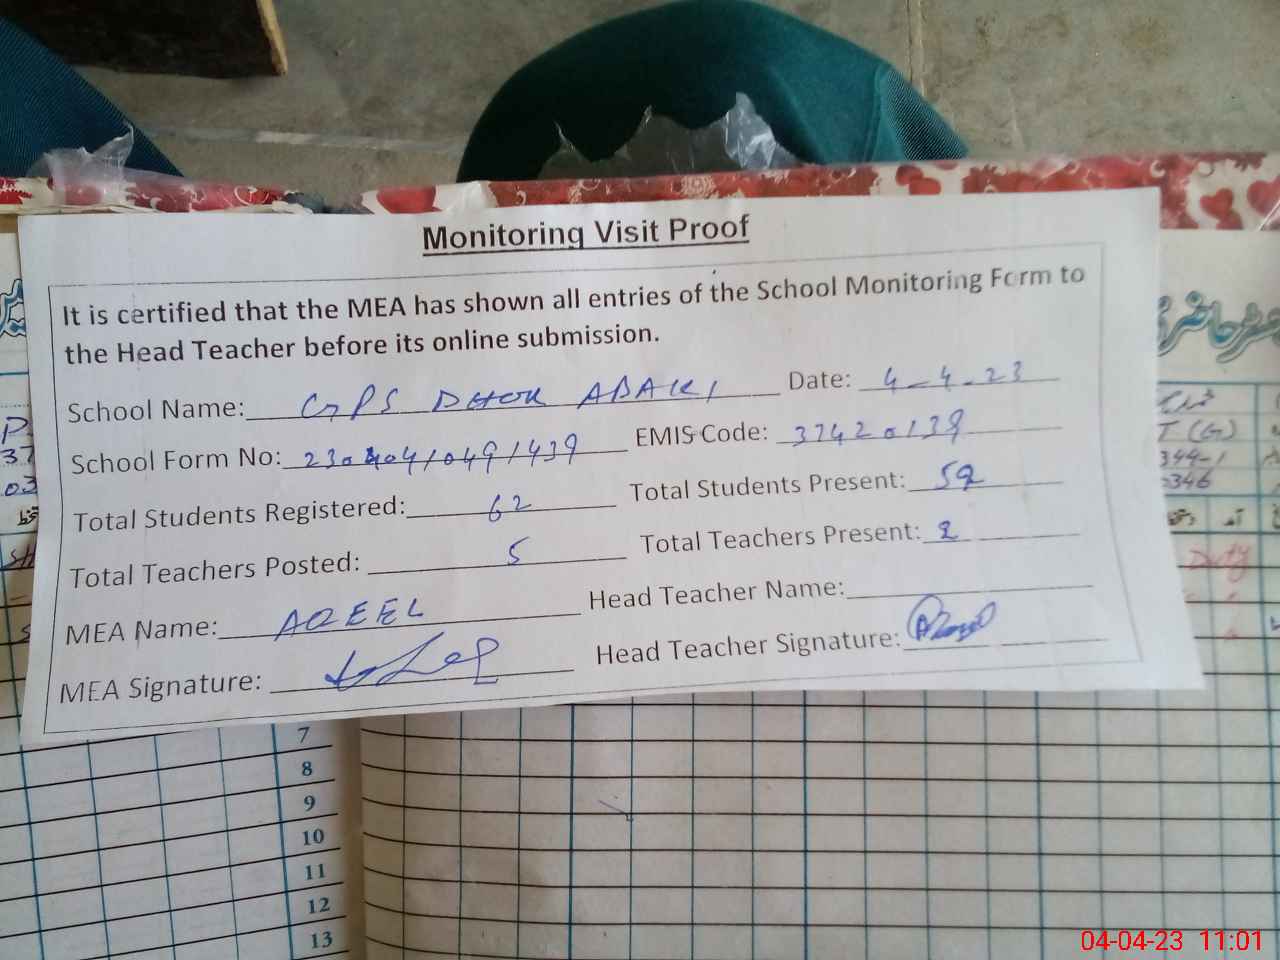 Monitoring Visit Proof
It is certified that the MEA has shown all entries of the School Monitoring Form to
the Head Teacher before its online submission.
School Name: GPS DHOK ABAKI Date: 4-4-23
School Form No: 23040410491439 EMIS Code: 37420138
Total Students Registered: 62 Total Students Present: 59
Total Teachers Posted: 5 Total Teachers Present: 2
MEA Name: AQEEL Head Teacher Name:
MEA Signature: Head Teacher Signature:
T (G)
344-1
0346
Duty
7
8
9
10
11
12
13
04-04-23 11:01